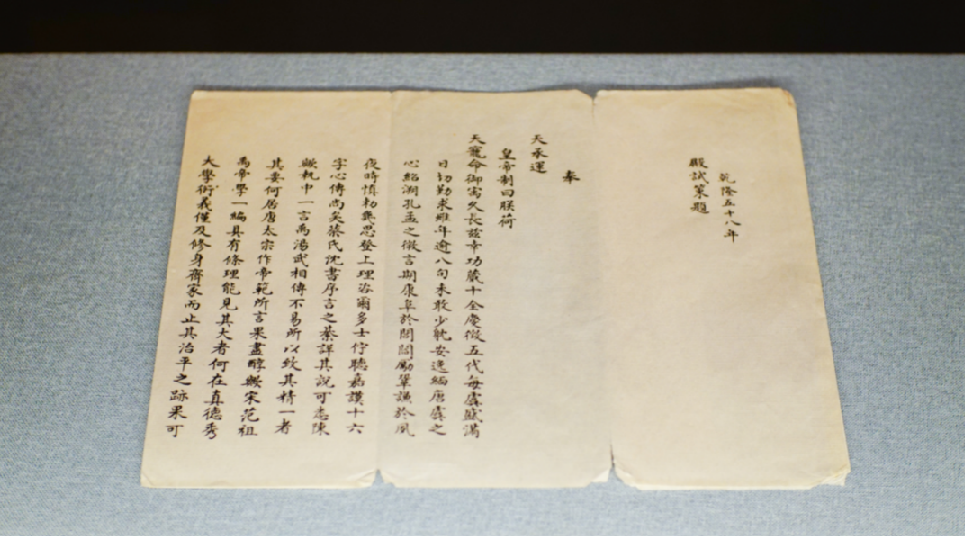 乾隆五十八年
殿試策題
奉
天承運
皇帝制曰朕荷
天寵命御寓久長茲幸功蕆十全慶徵五代每虞盛滿
日切勤求雖年逾八旬未敢少耽安逸緬唐虞之
心紹溯孔孟之微言期康阜於閭閻勵單謙於夙
夜時慎勅幾思登上理咨爾多士佇聽嘉謨十六
字心傳尚矣蔡氏沈書序言之綦詳其說可悉陳
歟執中一言禹湯武相傳不易所以致其精一者
其要何居唐太宗作帝範所言果盡醇歟宋范祖
禹帝學一編具有條理能見其大者何在真德秀
大學衍義僅及修身齊家而止其治平之跡果可